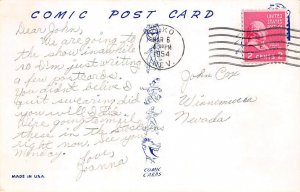 COMIC POST CARD
Dear Johns,
We are going to
the show in awhile
so I'm just writing
a few postcards.
You didn't believe I
quit swearing did
you well I did.
We're going to mail
these in the
right now. See you
Monday.
Love
Joanna
MAR 6
PM
1954
NEV.
UNITED STATES
POSTAGE
2 CENTS 2
John Cox
Winnemucca
Nevada
COMIC
CARDS
MADE IN U.S.A.